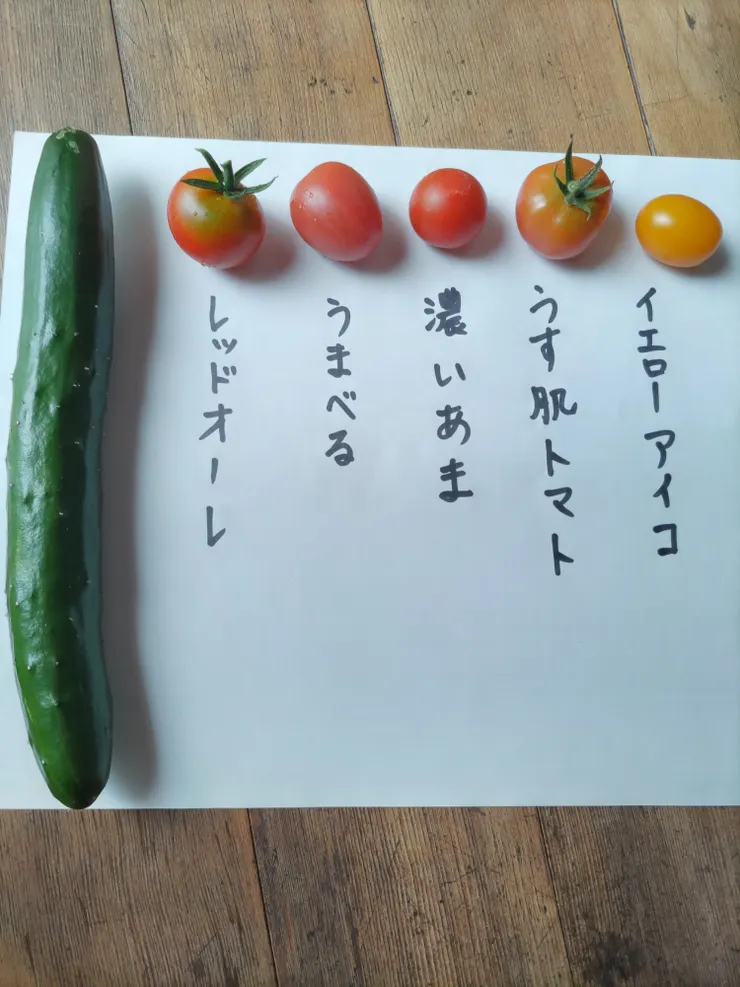 イエローアイコ
うす肌トマト
濃いあま
うまべる
レッドオーレ